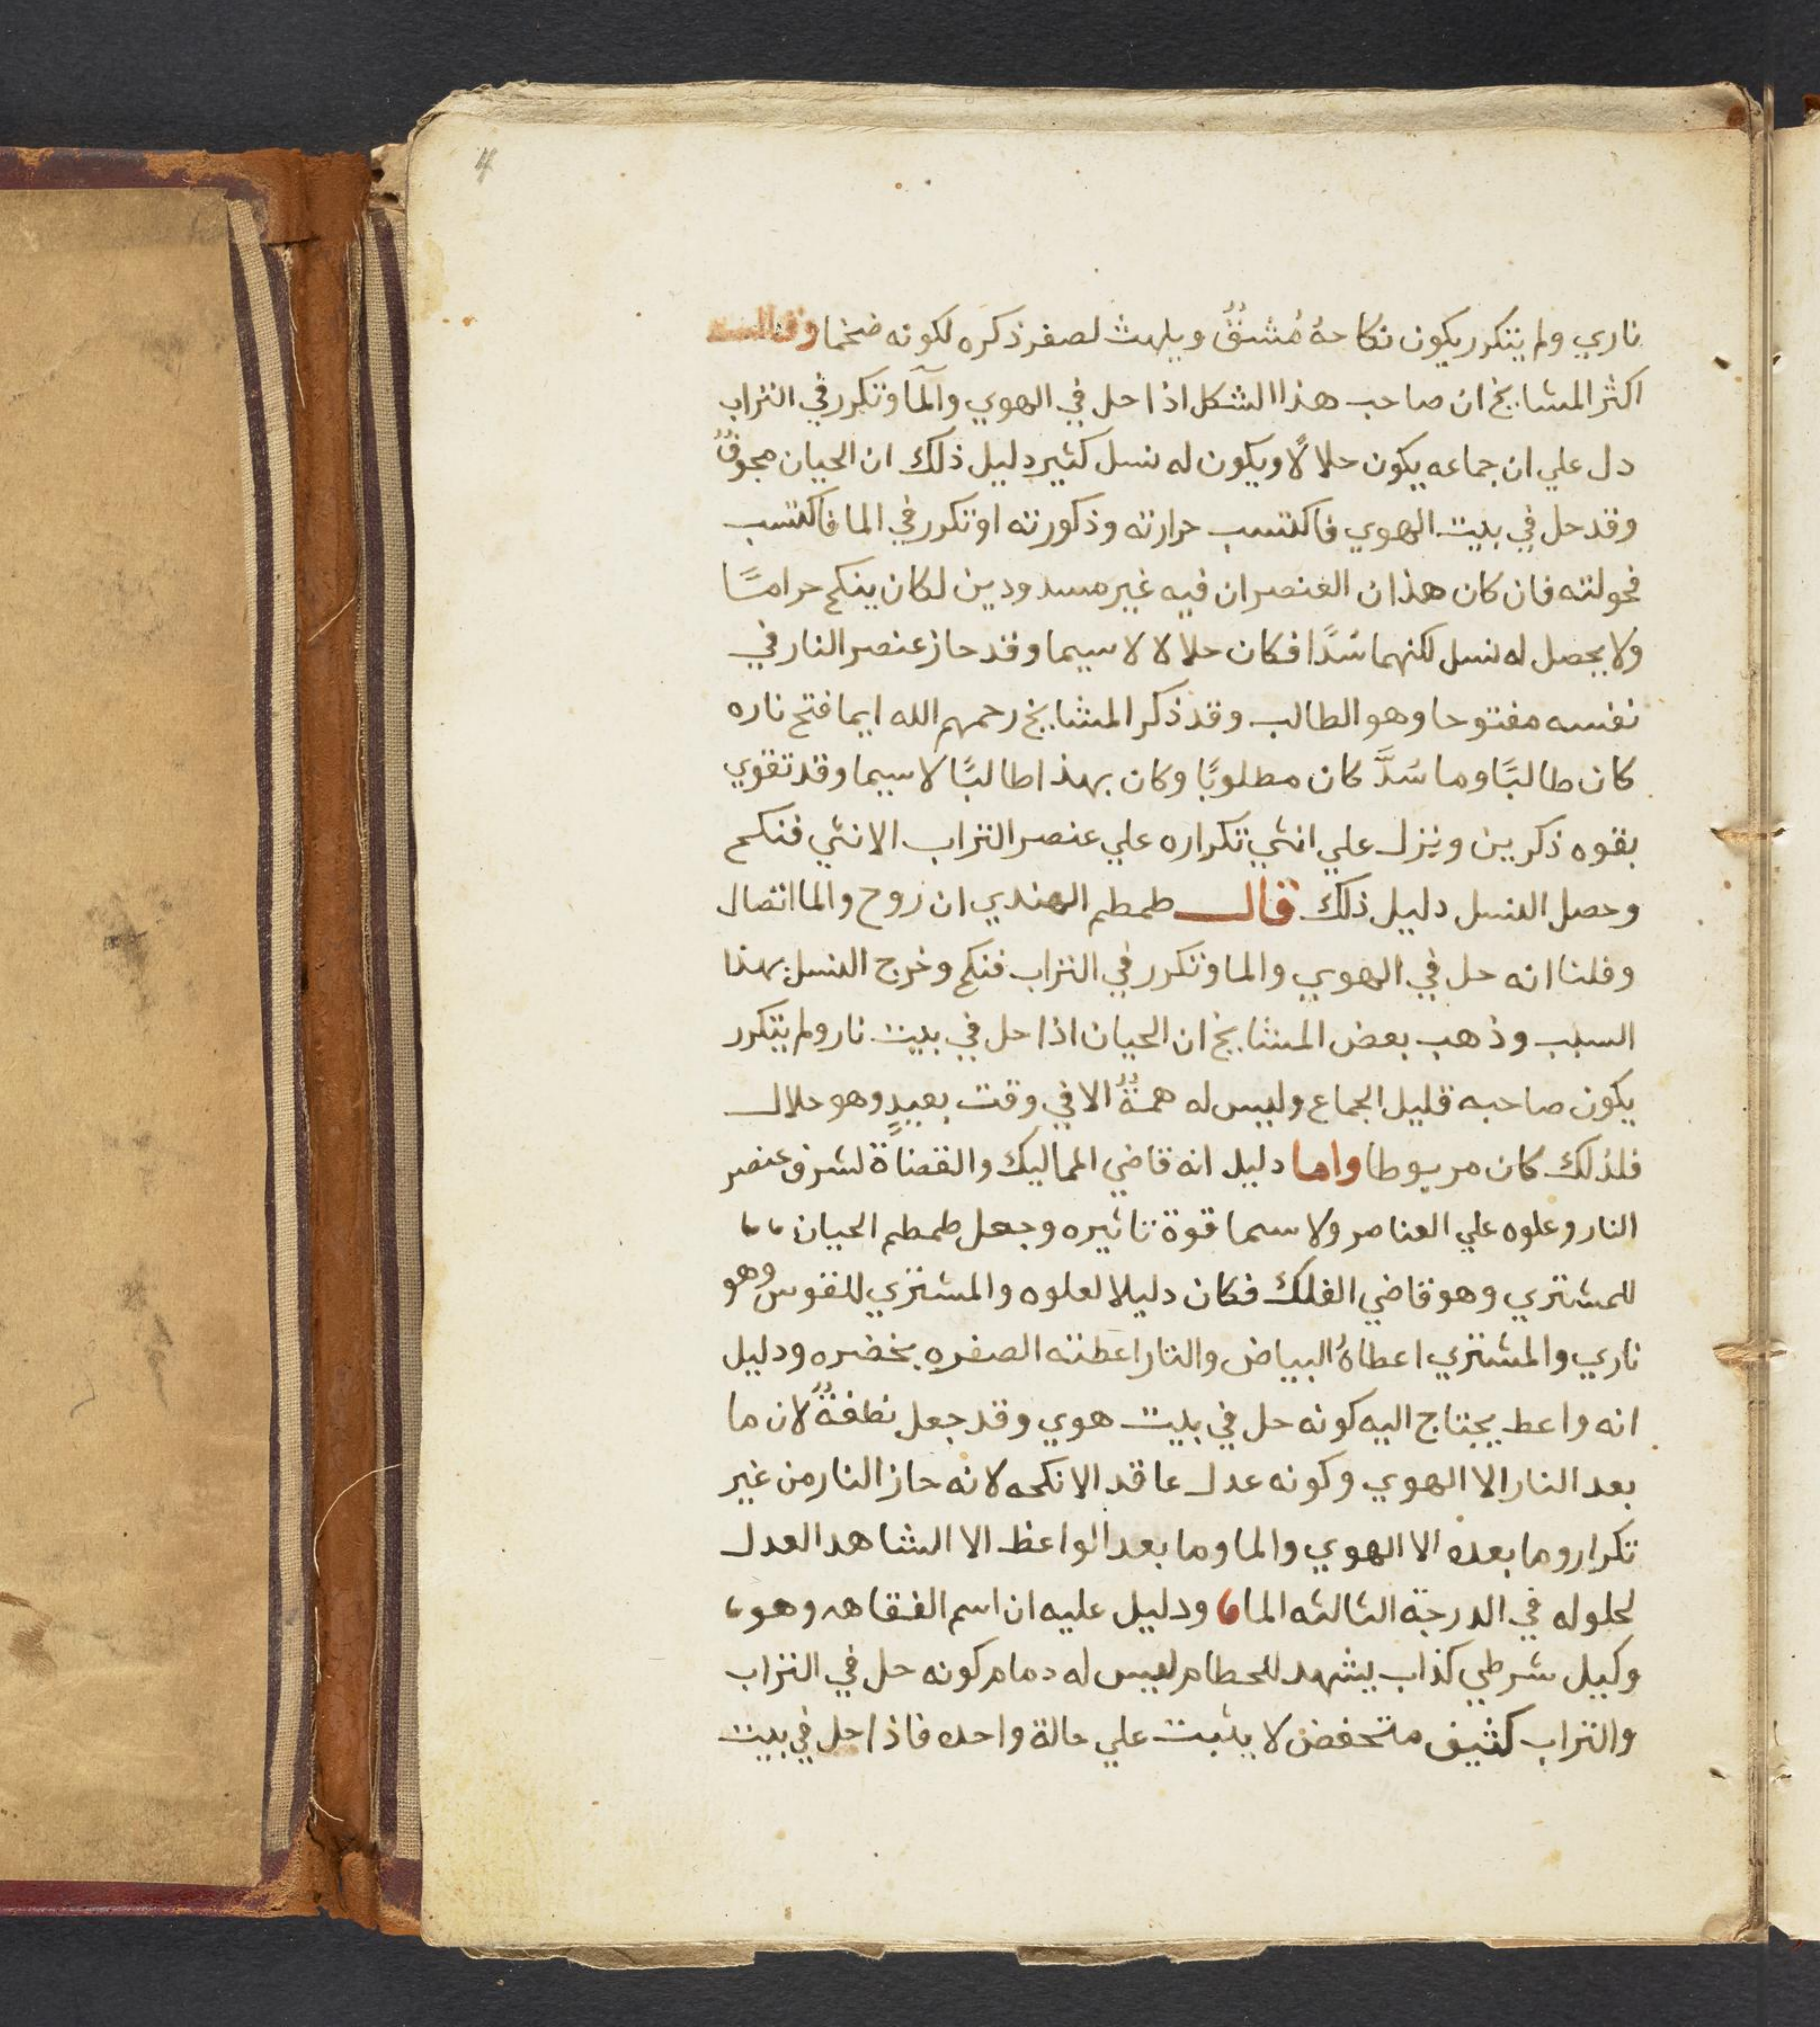 4
ناري ولم يتكرر يكون نكاحهُ مُشقٌ ويلهث لصغر ذكره لكونه ضخما وقالت
اكثر المشايخ ان صاحب هذا الشكل اذا حل في الهوي والمآ وتكرر في التراب
دل علي ان جماعه يكون حلالاً ويكون له نسل كثير دليل ذلك ان الحيان مجوفٌ
وقد حل في بيت الهوي فاكتسب حرارته وذكورته او تكرر في الما فاكتسب
فحولته فان كان هذان العنصران فيه غير مسدودين لكان ينكح حراماً
ولا يحصل له نسل لكنهما سُدَّا فكان حلالا لا سيما وقد حاز عنصر النار في
نفسه مفتوحا وهو الطالب وقد ذكر المشايخ رحمهم الله ايما فتح ناره
كان طالبًا وما سُدَّ كان مطلوبًا وكان بهذا طالبًا لا سيما وقد تقوي
بقوه ذكرين ونزل علي انثي تكراره علي عنصر التراب الانثي فنكح
وحصل النسل دليل ذلك قال طمطم الهندي ان روح والما اتصال
وقلنا انه حل في الهوي والما وتكرر في التراب فنكح وخرج النسل بهذا
السبب وذهب بعض المشايخ ان الحيان اذا حل في بيت نار ولم يتكرر
يكون صاحبه قليل الجماع وليس له همةٌ الا في وقت بعيدٍ وهو حلال
فلذلك كان مربوطا واما دليل انه قاضي المماليك والقضاة لشرف عنصر
النار وعلوه علي العناصر ولا سما قوة تاثيره وجعل طمطم الحيان
للمشتري وهو قاضي الفلك فكان دليلا لعلوه والمشتري للقوس وهو
ناري والمشتري اعطاهُ البياض والنار اعطته الصفره بخضره ودليل
انه واعط يحتاج اليه كونه حل في بيت هوي وقد جعل نطفةٌ لان ما
بعد النار الا الهوي وكونه عدل عاقد الانكحه لانه حاز النار من غير
تكرار وما بعده الا الهوي والما وما بعد الواعظ الا الشاهد العدل
لحلوله في الدرجة الثالثه الما ودليل عليه ان اسم الفقاهه وهو
وكيل شرطي كذاب يشهد للحطام ليس له دمام كونه حل في التراب
والتراب كثيف متحفض لا يثبت علي حالة واحده فاذا حل في بيت